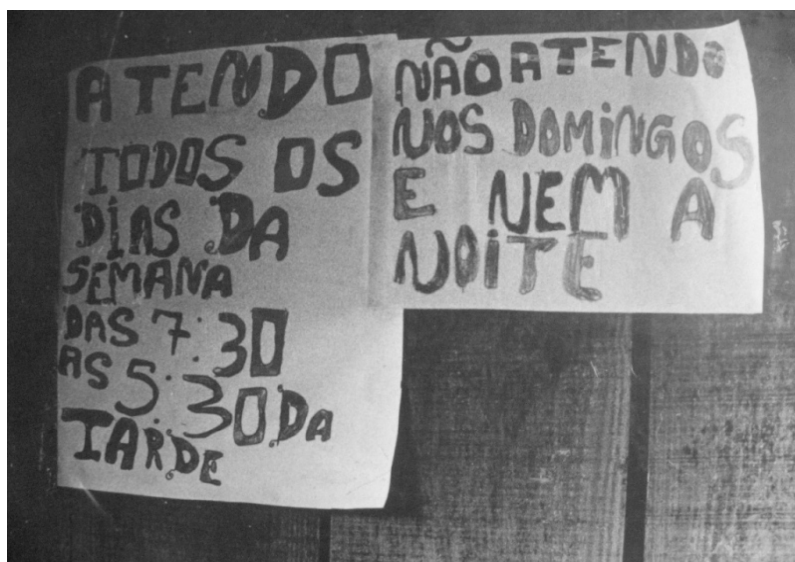 ATENDO
TODOS OS
DiAS DA
SEMANA
DAS 7:30
AS 5:30 DA
TARDE
NÃO ATENDO
NOS DOMiNGOS
E NEM A
NOiTE